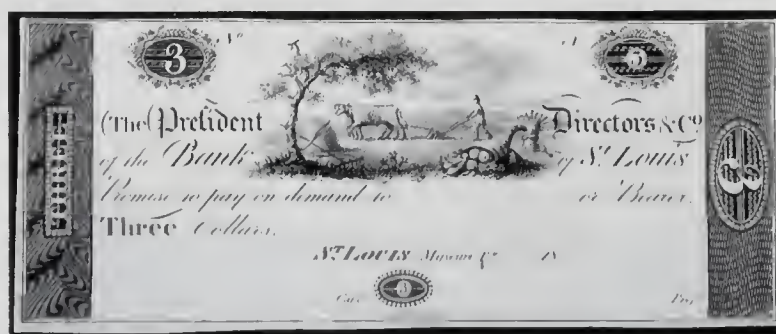 3 No A 3
(The) President Directors & Co.
of the Bank of St. Louis
Promise to pay on demand to or Bearer,
Three Dollars.
St. Louis Missouri Ty. 18
3
THREE
3